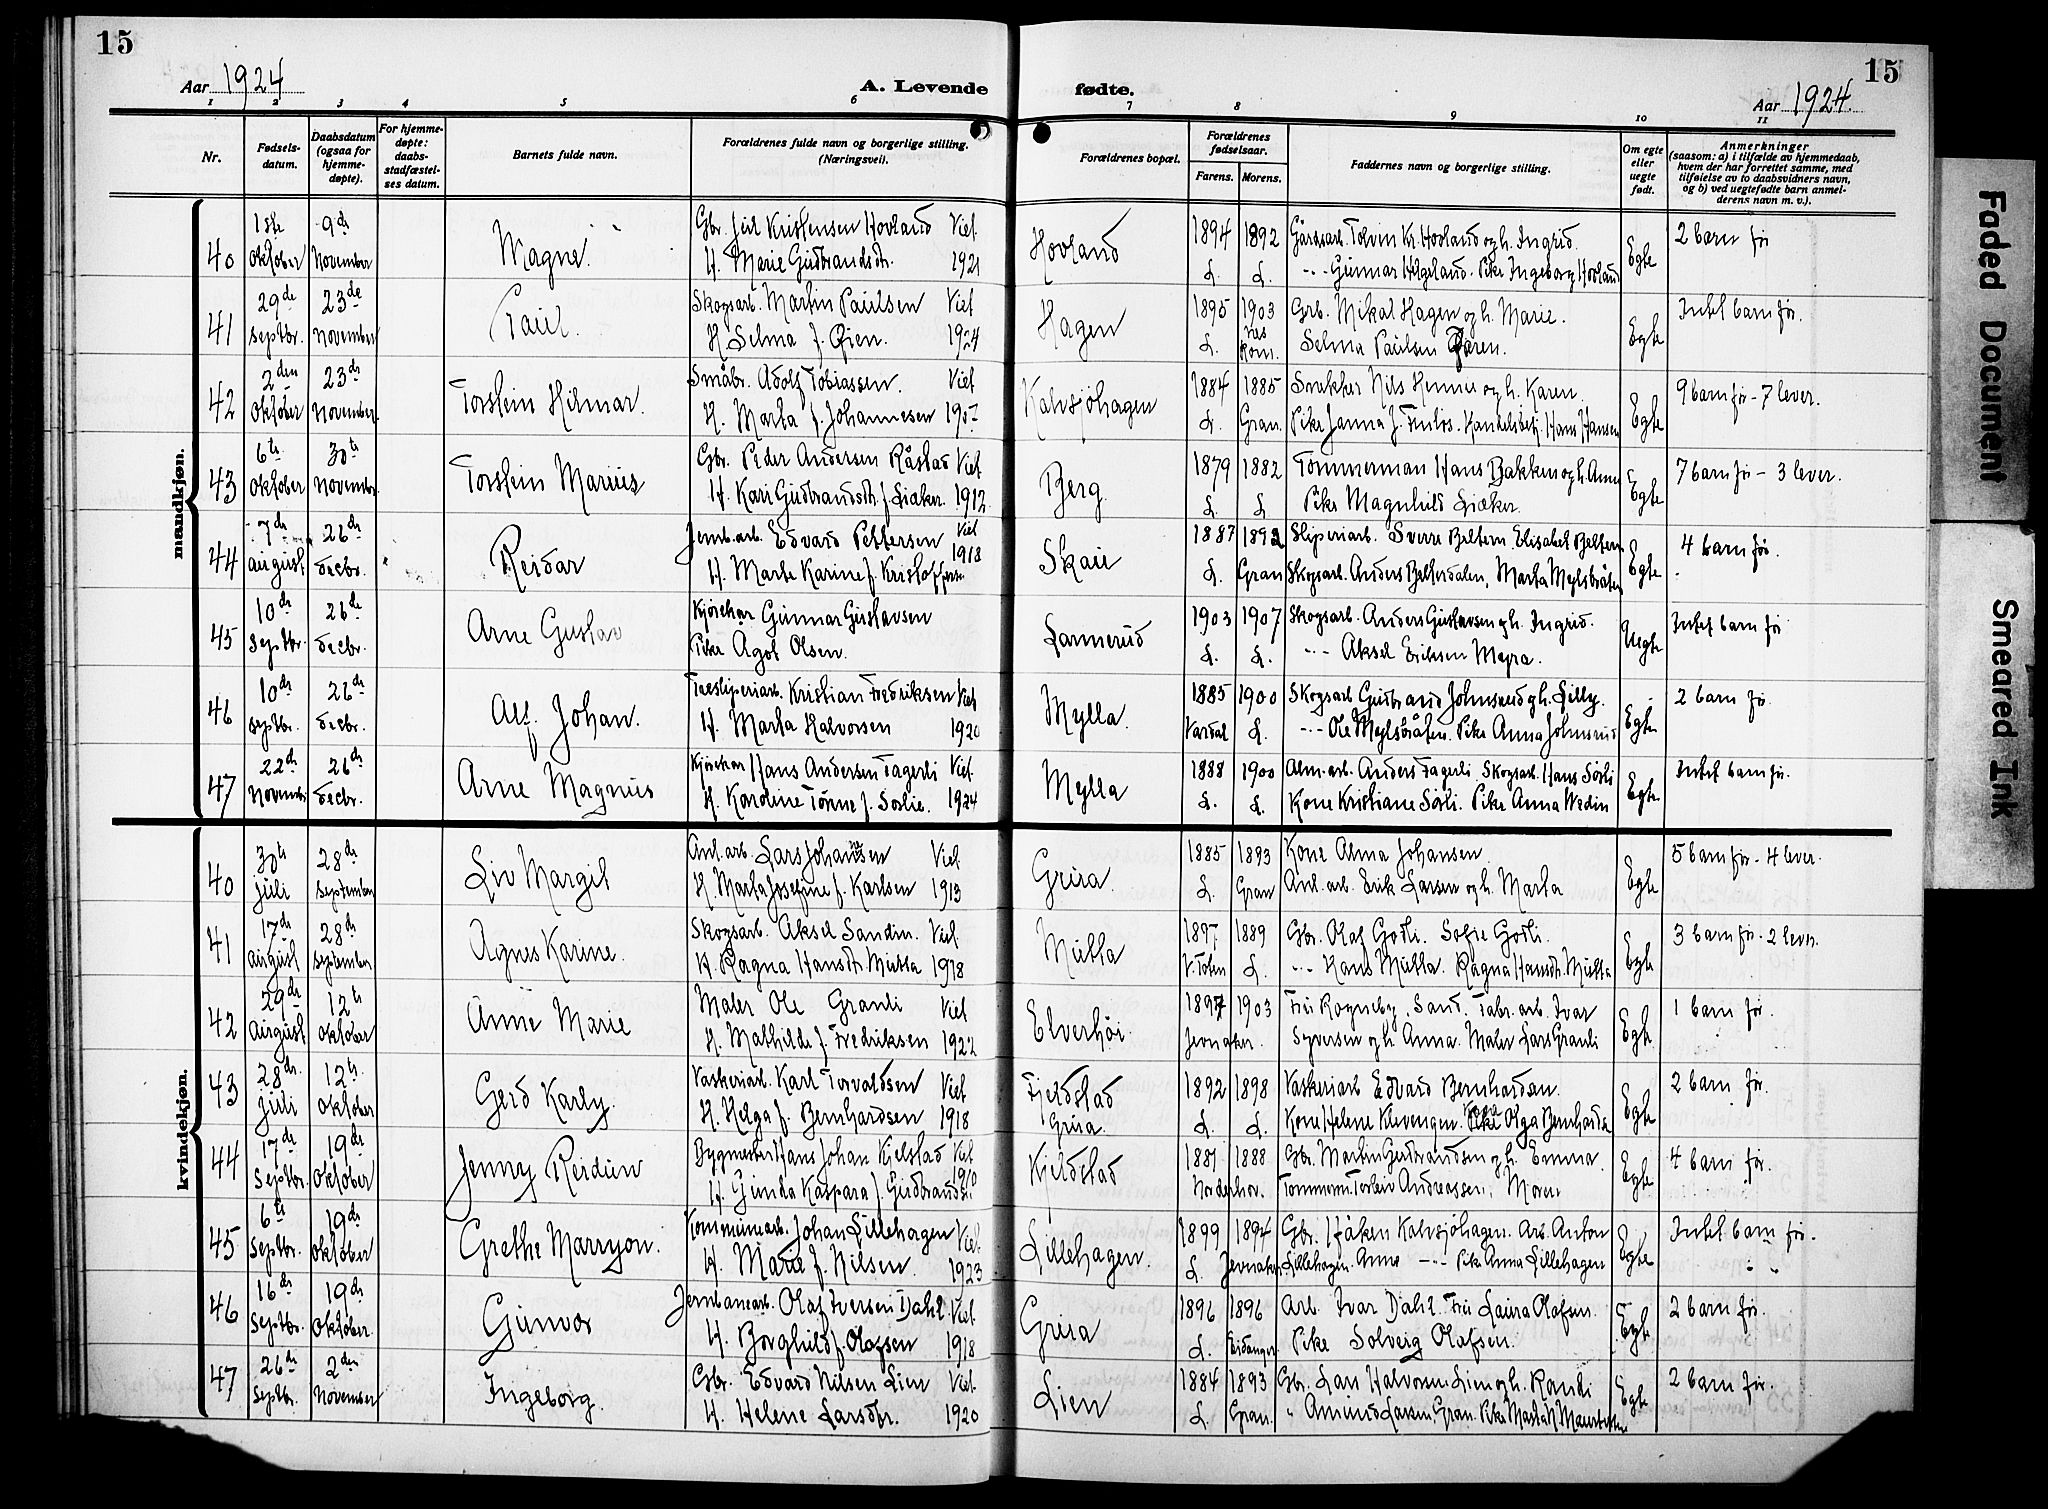 15
15
Aar 1924
A. Levende fødte.
Aar 1924.
1 2 3 4 5 6 7 8 9 10 11
Nr.
Fødsels-
datum.
Daabsdatum
(ogsaa for
hjemme-
døpte).
For hjemme-
døpte:
daabs-
stadfæstel-
ses datum.
Barnets fulde navn.
Forældrenes fulde navn og borgerlige stilling.
(Næringsvei).
Forældrenes bopæl.
Forældrenes
fødselsaar.
Farens. Morens.
Faddernes navn og borgerlige stilling.
Om egte
eller
uegte
født.
Anmerkninger
(saasom: a) i tilfælde av hjemmedaab,
hvem der har forrettet samme, med
tilføielse av to daabsvidners navn,
og b) ved uegtefødte barn anmel-
derens navn m. v.).
mandkjøn.
40 1ste Oktober 9de November Magne. Gbr. Kristensen Hovland Viet
H. Marie Gudbrandsdtr. 1921 Hovland 1894 L. 1892 L. Gårdsarb. Tolvin Kr. Hovland og h. Ingrid.
Gunnar Helgeland. Pike Ingeborg Hovland Egte 2 barn før
41 29de Septbr. 23de November Paul. Skogsarb. Martin Paulsen Viet
H. Selma f. Øien. 1924 Hagen 1895 L. 1903 Nes Rom. Gbr. Mikal Hagen og h. Marie.
Selma Paulsen Egte Intet barn før.
42 2den Oktober 23de November. Torstein Hilmar. Småbr. Adolf Tobiassen. Viet
H. Marta f. Johannesen 1907 Kalvsjøhagen 1884 L. 1885 Gran. Snekker Nils og h. Karen.
Pike Janna J. Handelsbetj. Hans Hansen Egte 9 barn før - 7 lever.
43 6te Oktober 30te November Torstein Marius Gbr. Peder Andersen Råstad Viet
H. Kari Gudbrandsdtr. f. Liaker. 1912 Berg. 1879 L. 1882 L. Tømmerman Hans Bakken og h. Anna
Pike Magnhild Liaker. Egte 7 barn før - 3 lever.
44 7de august 26de Decbr. Reidar Jernb.arb. Edvard Pettersen Viet 1918
H. Marte Karine f. Kristoffersen Skari 1887 L. 1892 Gran Sliperiarb. Sverre Beltern Elisabet Beltern
Skogsarb. Anders Marta Mylsbråten Egte 4 barn før.
45 10de Septbr. 26de Decbr. Arne Gustav Kjørekar Gunnar Gustavsen
Pike Ågot Olsen. Lannerud 1903 L. 1907 L. Skogsarb. Anders Gustavsen og h. Ingrid.
Aksel Eriksen Myra. Uegte Intet barn før
46 10de Septbr. 26de Decbr. Alf Johan. Tresliperiarb. Kristian Fredriksen Viet
H. Marta Halvorsen 1920 Mylla. 1885 Vardal 1900 L. Skogsarb. Gudbrand Johnsrud og h. Lilly.
Ole Mylsbråten. Pike Anna Johnsrud Egte 2 barn før.
47 22de November 26de Decbr. Arne Magnus Kjørekar Hans Andersen Fagerli Viet
H. Karoline Tonne f. Sørlie. 1924 Mylla 1888 L. 1900 L. Alm.arb. Anders Fagerli. Skogsarb. Hans Sørli
Kone Kristiane Sørli. Pike Anna Wedin Egte Intet barn før.
kvindekjøn.
40 30te Juli 28de September Liv Margit Anl. arb. Lars Johansen Viet
H. Marta Josefine f. Karlsen 1913 Grua. 1885 L. 1893 Gran Kone Alma Johansen.
Anl. arb. Erik Larsen og h. Marta Egte 5 barn før - 4 lever.
41 17de august 28de September Agnes Karine. Skogsarb. Aksel Sandin. Viet
H. Ragna Hansdtr. Mutta 1918 Mutta 1897 V. Toten 1889 L. Gbr. Olaf Godli. Sofie Godli.
Hans Mutta. Ragna Hansdtr. Mutta Egte 3 barn før - 2 lever.
42 29de August 12te Oktober Anne Marie Maler Ole Granli Viet
H. Mathilde f. Fredriksen 1922 Elverhøi. 1897 1903 Jevnaker. Fru Rogneby, Sand. Fabr. arb. Ivar
Syversen og h. Anna. Maler Lars Granli Egte 1 barn før.
43 28de Juli 12te Oktober Gerd Karly. Vaskeriarb. Karl Torvaldsen Viet
H. Helga f. Bernhardsen 1918 Fjeldstad
Grua. 1892 L. 1898 L. Vaskeriarb Edvard Bernhardsen.
Kone Helene Klevengen. Olga Egte 2 barn før.
44 17de Septbr. 19de Oktober Jenny Reidun Bygmester Hans Johan Kjelstad Viet 1910
H. Gunda Kaspara f. Gudbrandsd. Kjeldstad 1881 1888 Norderhov. Gbr. Martin Gudbrandsen og h. Emma.
Tømmerm. Torleiv Andreassen. Moren Egte 4 barn før.
45 6te Septbr. 19de Oktober Grethe Marryon. Kommunearb. Johan Lillehagen Viet
H. Marie f. Nilsen. 1923 Lillehagen. 1899 L. 1894 Jevnaker. Gbr. Håken Kalvsjøhagen. Arb. Anton
Lillehagen. Anne Pike Anna Lillehagen Egte Intet barn før.
46 16de Septbr. 19de Oktober. Gunvor Jernbanearb. Olaf Iversen Dahl Viet
H. Borghild f. Olafsen 1918 Grua 1896 L. 1896 Eidanger Arb. Ivar Dahl. Fru Laura Olafsen.
Pike Solveig Olafsen. Egte 2 barn før.
47 26de Septbr. 2den November Ingeborg. Gbr. Edvard Nilsen Lien Viet
H. Helene Larsdtr. 1920 Lien 1884 L. 1893 Gran. Gbr. Lars Halvorsen Lien og h. Randi
Amund Larsen, Gran. Pike Marta Egte 2 barn før.
Faded Document
Smeared Ink